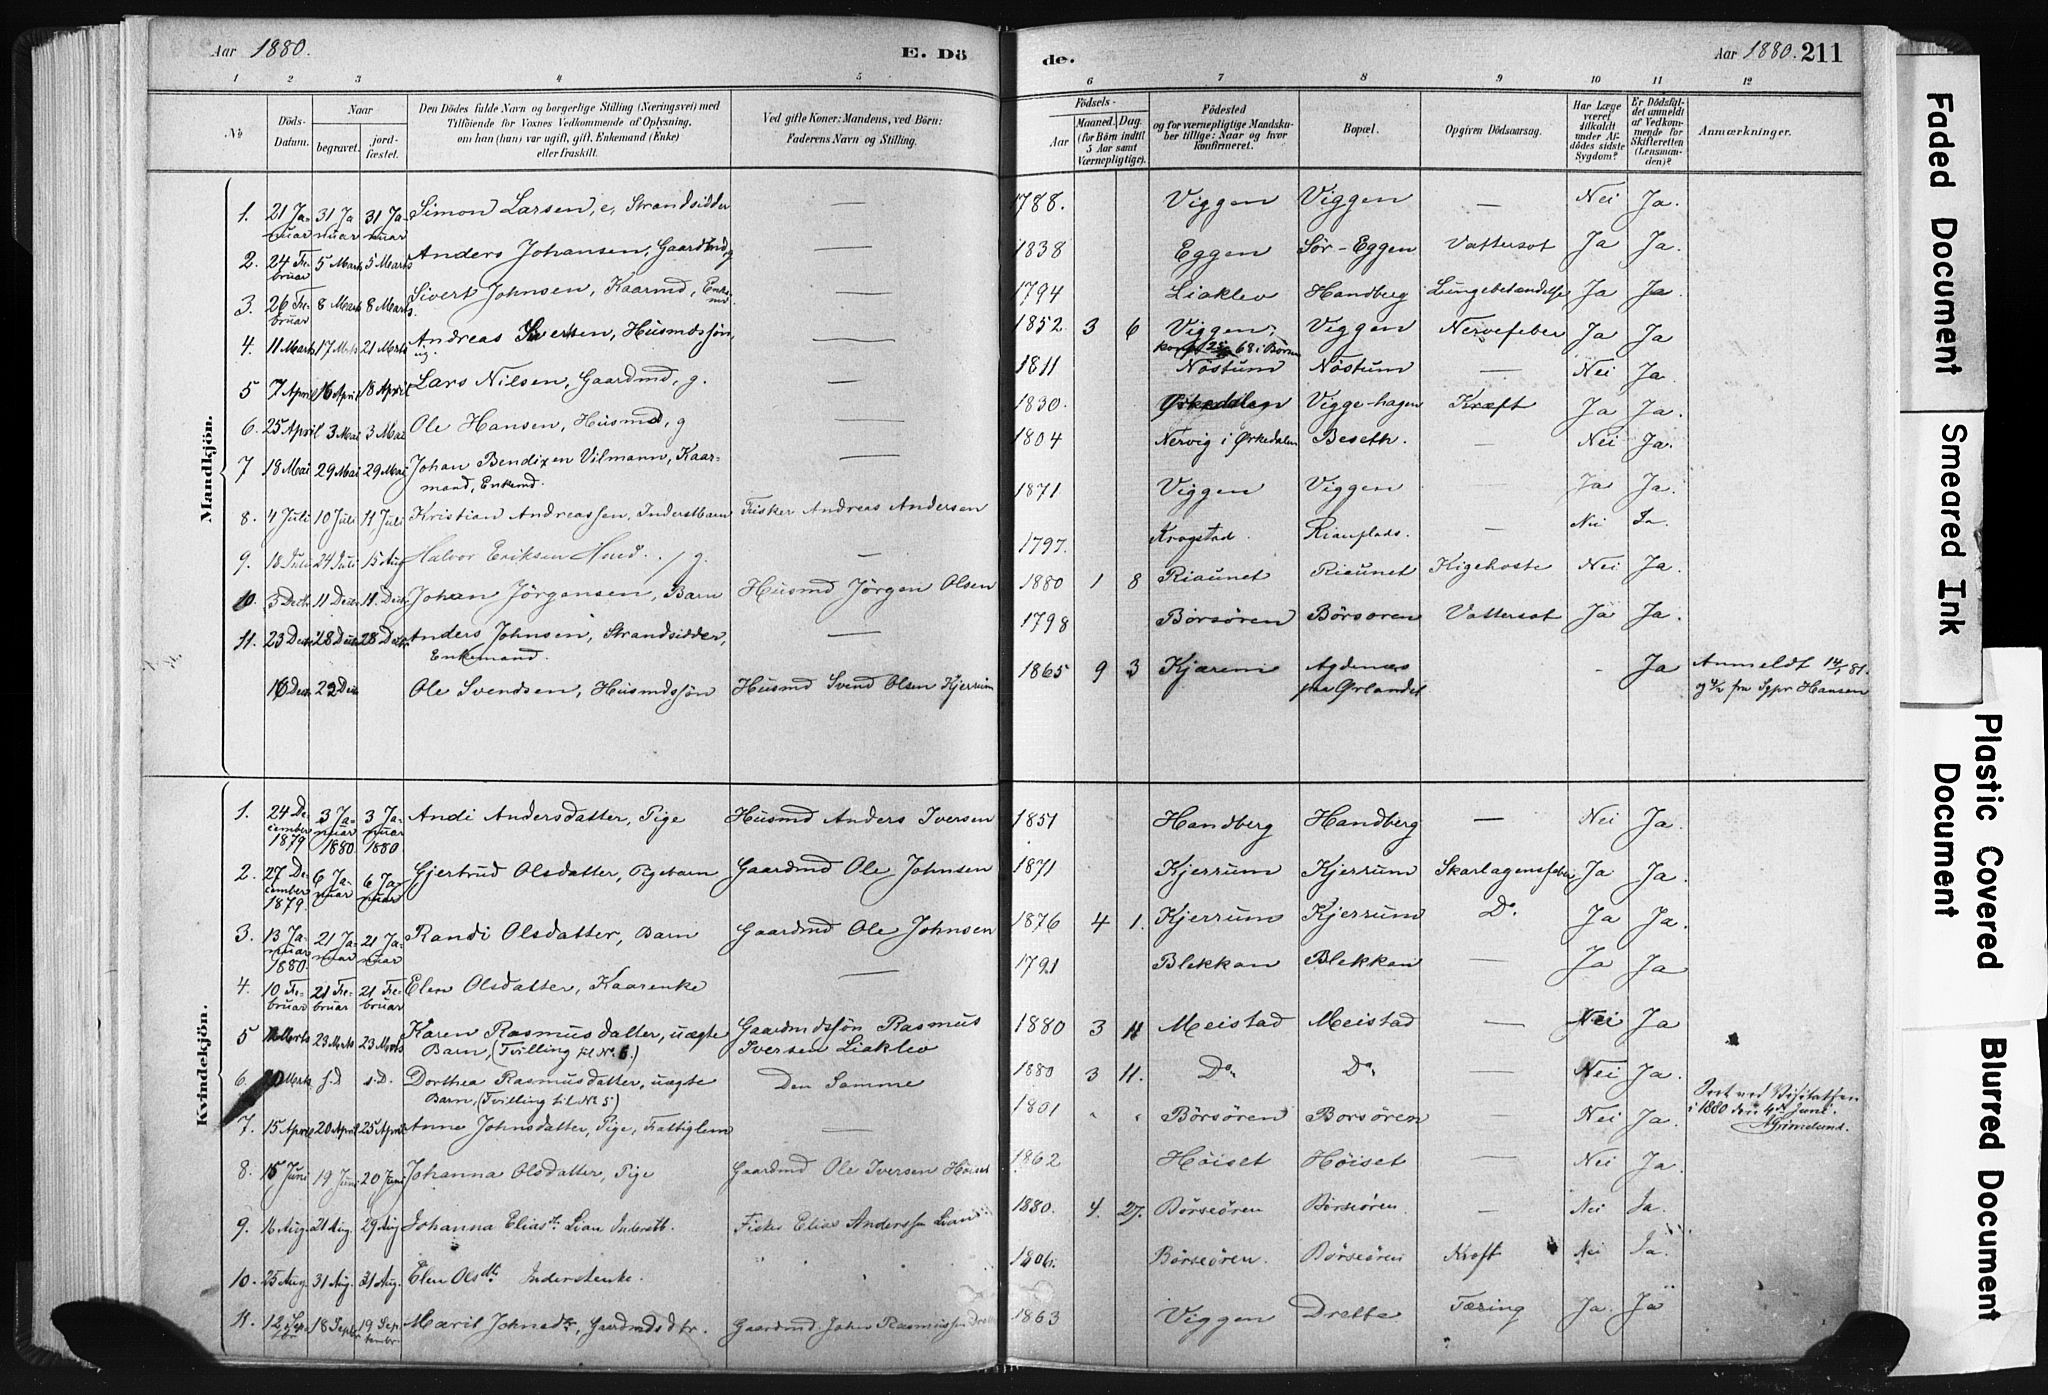 Aar 1880.
E. Dö
de.
Aar 1880. 211
1 2 3 4 5 6 7 8 9 10 11 12
No
Döds-Datum.
Naar
begravet.
jord-fæstet.
Den Dödes fulde Navn og borgerlige Stilling (Næringsvei) med
Tilföiende for Voxnes Vedkommende af Oplysning,
om han (hun) var ugift, gift, Enkemand (Enke)
eller fraskilt.
Ved gifte Koner: Mandens, ved Börn:
Faderens Navn og Stilling.
Födsels-
Aar
Maaned. Dag.
(for Börn indtil
5 Aar samt
Værnepligtige).
Födested
og for værnepligtige Mandska-
ber tillige: Naar og hvor
konfirmeret.
Bopæl.
Opgiven Dödsaarsag.
Har Læge
været
tilkaldt
under Af-
dödes sidste
Sygdom?
Er Dödsfal-
det anmeldt
af Vedkom-
mende for
Skifteretten
(Lensman-
den)?
Anmærkninger.
Mandkjön.
1. 21 Januar 31 Januar 31 Januar Simon Larsen, e, Strandsidder — 1788. Viggen Viggen — Nei Ja.
2. 24 Februar 5 Marts 5 Marts Anders Johansen, Gaardmd, g — 1838 Eggen Sör-Eggen Vattersot Ja Ja.
3. 26 Februar 8 Marts 8 Marts Sivert Johnsen, Kaarmd, Enkemd. — 1794 Liaklev Handberg Lungebetændelse Ja Ja
4. 11 Marts 17 Marts 21 Marts Andreas Iversen, Husmdssön, ug. — 1852 3 6 Viggen, 68 i Börsen Viggen Nervefeber Ja Ja
5 7 April 16 April 18 April Lars Nilsen, Gaardmd, g. — 1811 Nöstum Nöstum — Nei Ja.
6. 25 April 3 Mai 3 Mai Ole Hansen, Husmd, g — 1830. Ørkedalen Viggehagen Kræft Ja Ja.
7 18 Mai 29 Mai 29 Mai Johan Bendixen Vilmann, Kaarmand, Enkemd. — 1804 Nervig i Ørkedalen Beseth. — Nei Ja.
8. 4 Juli 10 Juli 11 Juli Kristian Andreassen, Inderstbarn Fisker Andreas Andersen 1871 Viggen Viggen Ja Ja.
9. 18 Juli 24 Juli 15 Aug Halvor Eriksen g. — 1797. Krogstad. Rianplads. — Nei Ja
10. 5 Decbr 11 Decbr 11 Decbr Johan Jörgensen, Barn Husmd Jörgen Olsen 1880 1 8 Riaunet Riaunet Kigehoste Nei Ja.
11. 23 Decbr 28 Decbr 28 Decbr Anders Johnsen, Strandsidder, Enkemand. — 1798 Börsören Börsören Vattersot Ja Ja.
16 Decbr 22 Decbr Ole Svendsen, Husmdssön Husmd Svend Olsen Kjerrum 1865 9 3 Agdenæs paa Ørlandet Ja Anmeldt 14/1 81.
fra Sgpr Hansen
Kvindekjön.
1. 24 December 1879 3 Januar 1880. 3 Januar 1880. Andi Andersdatter, Pige Husmd Anders Iversen 1851 Handberg Handberg — Nei Ja.
2. 27 December 1879. 6 Januar 6 Januar Gjertrud Olsdatter, Pigebarn Gaardmd Ole Johnsen 1871 Kjerrum Kjerrum Skarlagensfeber Ja Ja.
3. 13 Januar 1880. 21 Januar 21 Januar Randi Olsdatter, Barn Gaardmd Ole Johnsen 1876 4 1. Kjerrum Kjerrum Do. Ja Ja.
4. 10 Februar 21 Februar 21 Februar Elen Olsdatter, Kaarenke — 1791 Blekkan Blekkan Ja Ja
5 Marts 23 Marts 23 Marts Karen Rasmusdatter, uægte Barn, (Tvilling til No. 6.) Gaardmdssön Rasmus Iversen Liaklev 1880 3 11 Meistad Meistad — Nei Ja
6. 20 Marts s.d s.D. Dorthea Rasmusdatter, uægte Barn, (Tvilling til No 5) Den Samme 1880 3 11. Do Do — Nei Ja.
7. 15 April 20 April 25 April Anne Johnsdatter, Pige, Fattiglem — 1801 " " Börsören Borsören — Nei Ja. Seet ved Visitatsen i 1880 den 4de Juni. Grimelund.
8. 15 Juni 19 Juni 20 Juni Johanna Olsdatter, Pige Gaardmd Ole Iversen Höiset 1862 Höiset Höiset — Nei Ja.
9. 16 Aug. 21 Aug. 29 Aug Johanna Eliasdr. Lian Inderstb. Fisker Elias Anderssen Lian 1880. 4. 27. Börseören Börseören. — Nei Ja.
10. 25 Aug. 31 Aug. 31 Aug. Elen Olsdtr Inderstenke. " 1806. Börseören. Börseören Kreft Nei Ja.
11. 12 Septbr 18 Septbr 19 September Marit Johnsdtr, Gaardmdsdtr. Gaardmd. John Rasmussen Drette 1863 Viggen Drette Tæring Ja. Ja
Faded Document
Smeared Ink
Plastic Covered Document
Blurred Document